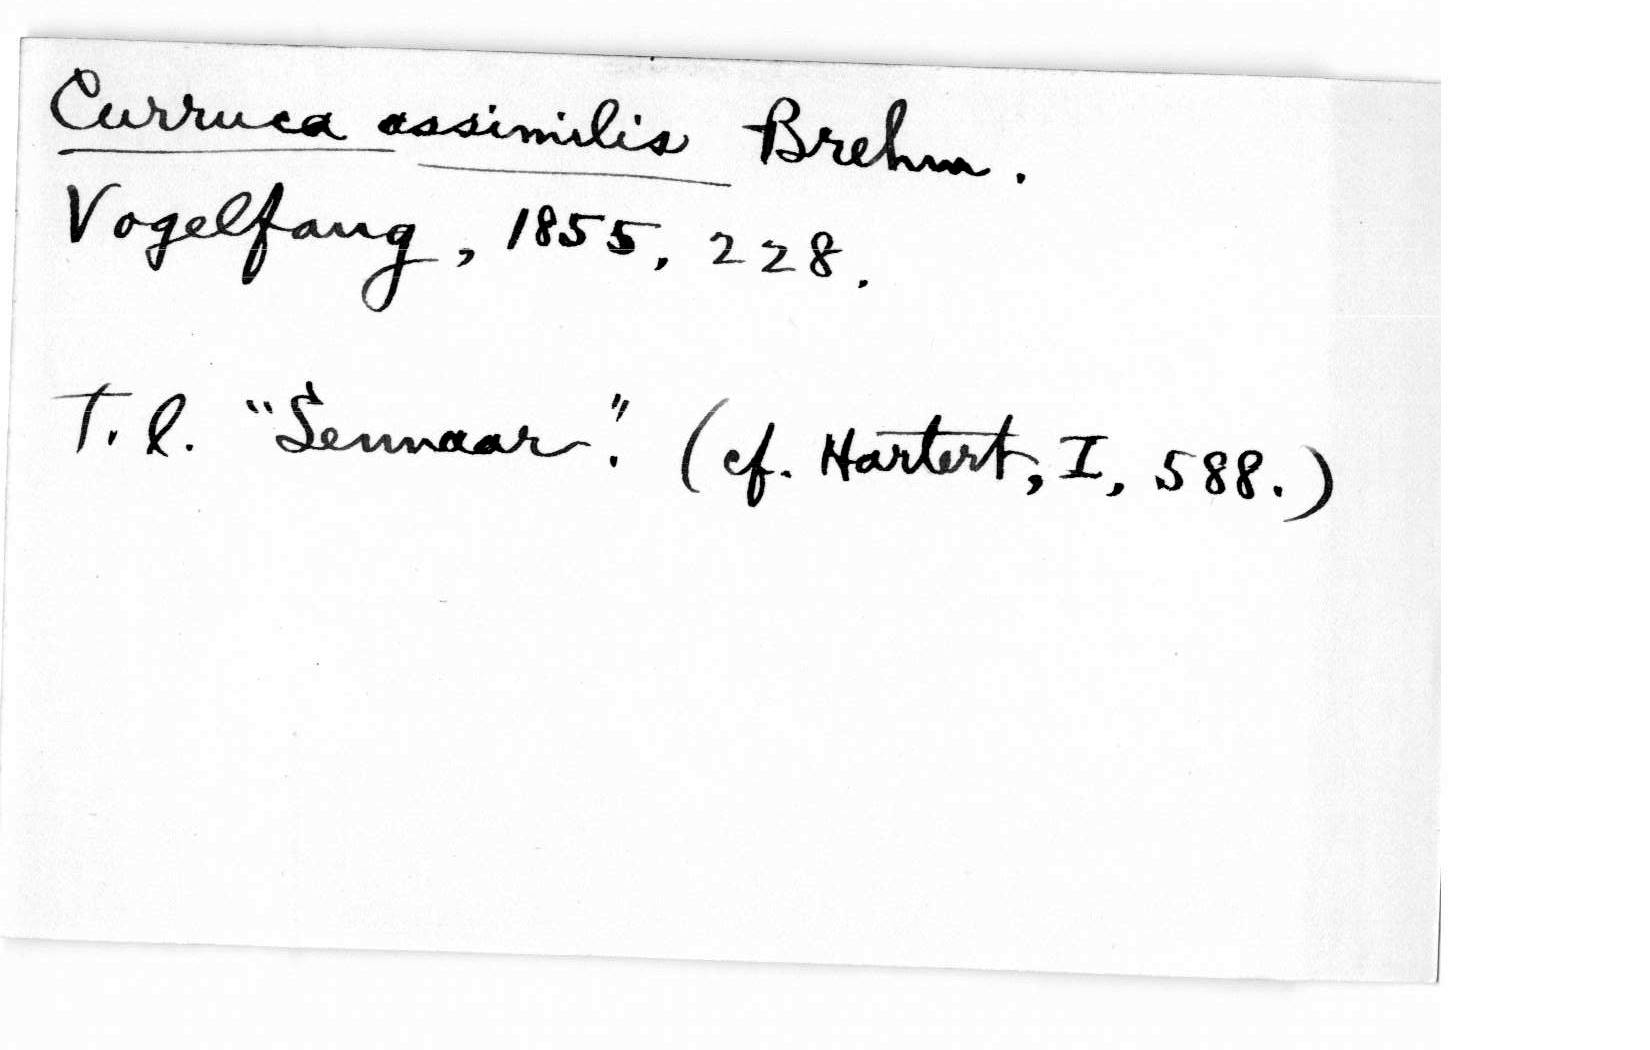 Curruca assimilis Brehm.
Vogelfang, 1855, 228.
T. l. "Sennaar". (cf. Hartert, I, 588.)